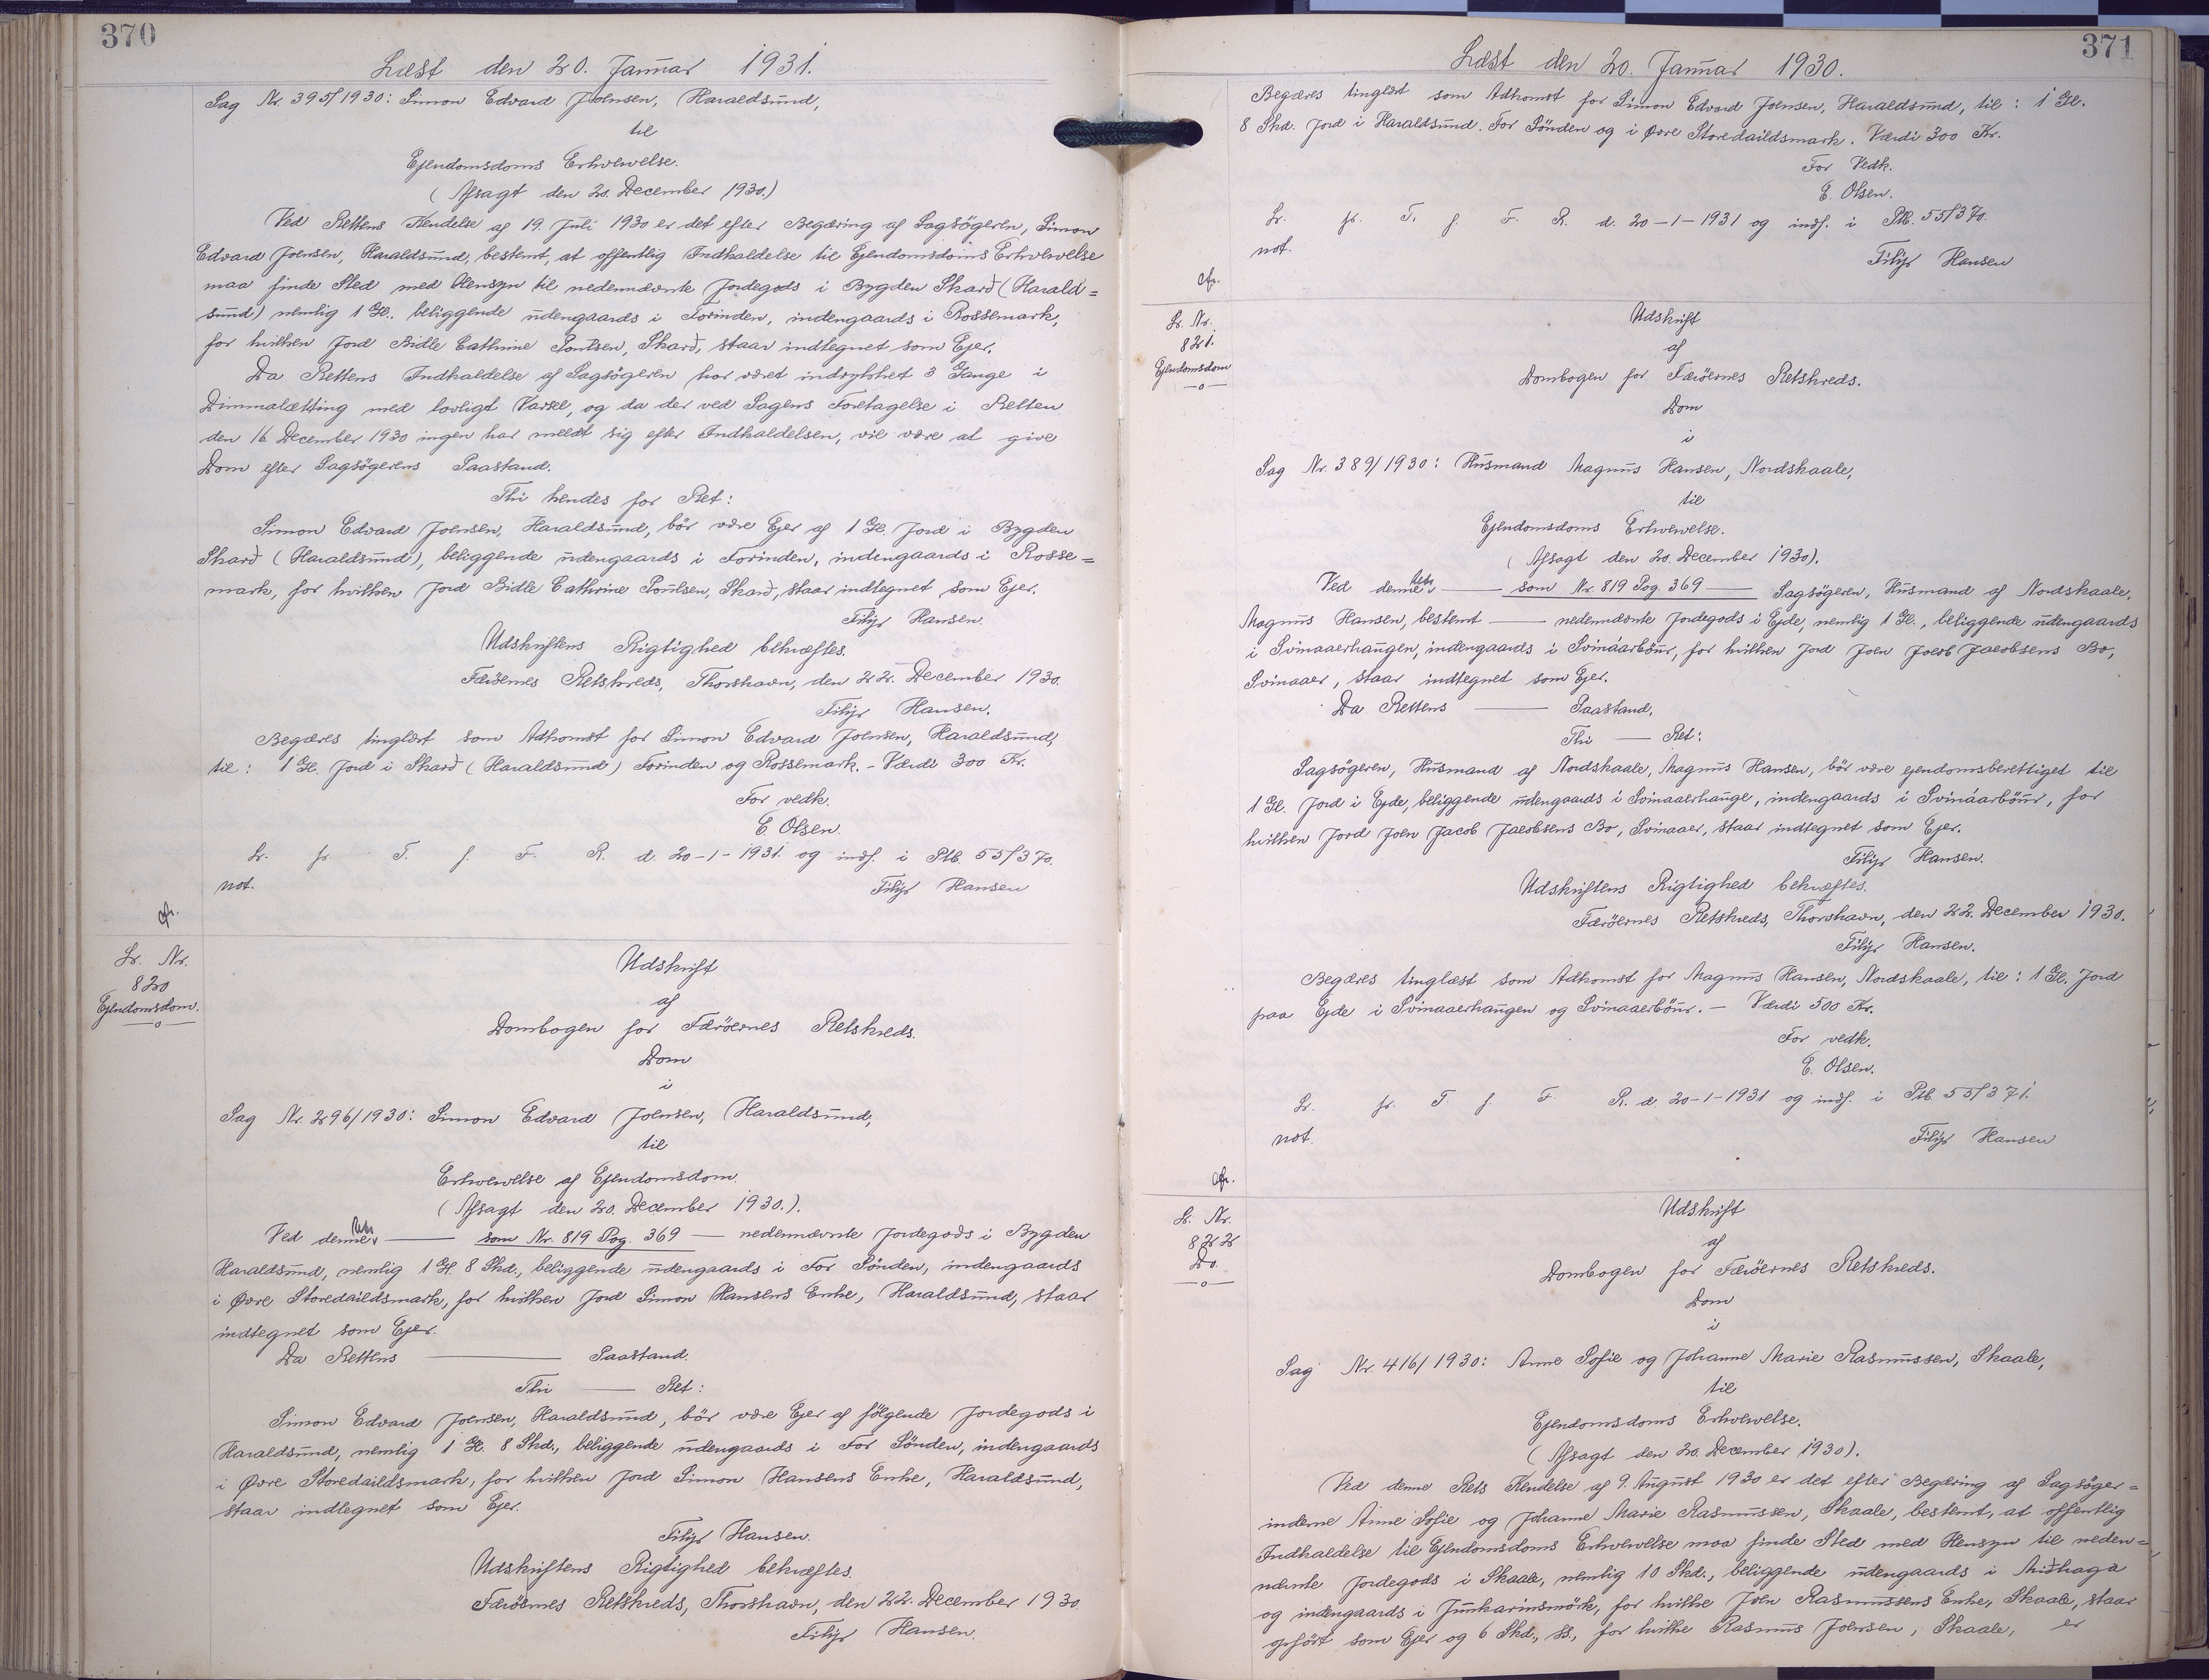 370
Læst den 20. Januar 1931.
Sag Nr. 395/1930: Simon Edvard Joensen, Haraldsund,
til
Ejendomsdoms Erhvervelse.
(Afsagt den 20. December 1930.)
Ved Rettens Kendelse af 19. Juli 1930 er det efter Begæring af Sagsögeren, Simon
Edvard Joensen, Haraldsund, bestemt, at offentlig Indkaldelse til Ejendomsdoms Erhvervelse
maa finde Sted med Hensyn til nedennævnte Jordegods i Bygden Skarð (Harald=
sund) nemlig 1 Gl. beliggende udengaards i Forinden, indengaards i Rossemark,
for hvilken Jord Bidle Cathrine Poulsen, Skarð, staar indtegnet som Ejer.
Da Rettens Indkaldelse af Sagsögeren har været indrykket 3 Gange i
Dimmalætting med lovligt Varsel, og da der ved Sagens Foretagelse i Retten
den 16. December 1930 ingen har meldt sig efter Indkaldelsen, vil være at give
Dom efter Sagsögerens Paastand.
Thi kendes for Ret:
Simon Edvard Joensen, Haraldsund, bör være Ejer af 1 Gl. Jord i Bygden
Skarð (Haraldsund), beliggende udengaards i Forinden, indengaards i Rosse=
mark, for hvilken Jord Bidle Cathrine Poulsen, Skarð, staar indtegnet som Ejer.
Filip Hansen.
Udskriftens Rigtighed bekræftes.
Færöernes Retskreds, Thorshavn, den 22. December 1930.
Filip Hansen.
Begæres tinglæst som Adkomst for Simon Edvard Joensen, Haraldsund,
til: 1 Gl. Jord i Skarð (Haraldsund) Forinden og Rossemark. - Værdi 300 Kr.
For vedk.
E. Olsen.
Lr. fr. T. f. F. R. d. 20-1-1931 og indf. i Ptb. 55/370.
not. Filip Hansen
cfr.
Lr. Nr.
820
Ejendomsdom.
—o—
Udskrift
af
Dombogen for Færöernes Retskreds.
Dom
i
Sag Nr. 296/1930: Simon Edvard Joensen, Haraldsund,
til
Erhvervelse af Ejendomsdom.
(Afsagt den 20. December 1930.).
Ved denne Rets —— som Nr. 819 Pag. 369 — nedennævnte Jordegods i Bygden
Haraldsund, nemlig 1 Gl. 8 Skd., beliggende udengaards i For Sønden, indengaards
i Øvre Storedaildsmark, for hvilken Jord Simon Hansens Enke, Haraldsund, staar
indtegnet som Ejer.
Da Rettens —— Paastand.
Thi —— Ret:
Simon Edvard Joensen, Haraldsund, bör være Ejer af fölgende Jordegods i
Haraldsund, nemlig 1 Gl. 8 Skd., beliggende udengaards i For Sønden, indengaards
i Øvre Storedaildsmark, for hvilken Jord Simon Hansens Enke, Haraldsund,
staar indtegnet som Ejer.
Filip Hansen.
Udskriftens Rigtighed bekræftes.
Færöernes Retskreds, Thorshavn, den 22. December 1930
Filip Hansen.
371
Læst den 20. Januar 1930.
Begæres tinglæst som Adkomst for Simon Edvard Joensen, Haraldsund, til: 1 Gl.
8 Skd. Jord i Haraldsund. For Sönden og i Øvre Storedaildsmark. Værdi 300 Kr.
For Vedk.
E. Olsen.
Lr. fr. T. f. F. R. d. 20-1-1931 og indf. i Ptb. 55/370.
not. Filip Hansen
cfr.
Lr. Nr.
821.
Ejendomsdom
—o—
Udskrift
af
Dombogen for Færöernes Retskreds.
Dom
i
Sag Nr. 389/1930: Husmand Magnus Hansen, Nordskaale,
til
Ejendomsdoms Erhvervelse.
(Afsagt den 20. December 1930).
Ved denne Rets —— som Nr. 819 Pag. 369 —— Sagsögeren, Husmand af Nordskaale,
Magnus Hansen, bestemt —— nedennævnte Jordegods i Ejde, nemlig 1 Gl., beliggende udengaards
i Svinaaerhaugen, indengaards i Svináarböur, for hvilken Jord Joen Jacob Jacobsens Bo,
Svinaaer, staar indtegnet som Ejer.
Da Rettens —— Paastand.
Thi —— Ret:
Sagsögeren, Husmand af Nordskaale, Magnus Hansen, bör være ejendomsberettiget til
1 Gl. Jord i Ejde, beliggende udengaards i Svinaaerhauge, indengaards i Svináarböur, for
hvilken Jord Joen Jacob Jacobsens Bo, Svinaaer, staar indtegnet som Ejer.
Filip Hansen.
Udskriftens Rigtighed bekræftes.
Færöernes Retskreds, Thorshavn, den 22. December 1930.
Filip Hansen.
Begæres tinglæst som Adkomst for Magnus Hansen, Nordskaale, til: 1 Gl. Jord
paa Ejde i Svinaaerhaugen og Svinaaerböur. — Værdi 500 Kr.
For vedk.
E. Olsen.
Lr. fr. T. f. F. R. d. 20-1-1931 og indf. i Ptb. 55/371.
not. Filip Hansen
cfr.
Lr. Nr.
822
Do.
—o—
Udskrift
af
Dombogen for Færöernes Retskreds.
Dom
i
Sag Nr. 416/1930: Anne Sofie og Johanne Marie Rasmussen, Skaale,
til
Ejendomsdoms Erhvervelse.
(Afsagt den 20. December 1930).
Ved denne Rets Kendelse af 9. August 1930 er det efter Begæring af Sagsöger=
inderne Anne Sofie og Johanne Marie Rasmussen, Skaale, bestemt, at offentlig
Indkaldelse til Ejendomsdoms Erhvervelse maa finde Sted med Hensyn til neden=
nævnte Jordegods i Skaale, nemlig 10 Skd., beliggende udengaards i Miðhaga
og indengaards i Junkarinsmörk, for hvilke Joen Rasmussens Enke, Skaale, staar
opfört som Ejer og 6 Skd., ss., for hvilke Rasmus Joensen, Skaale, er